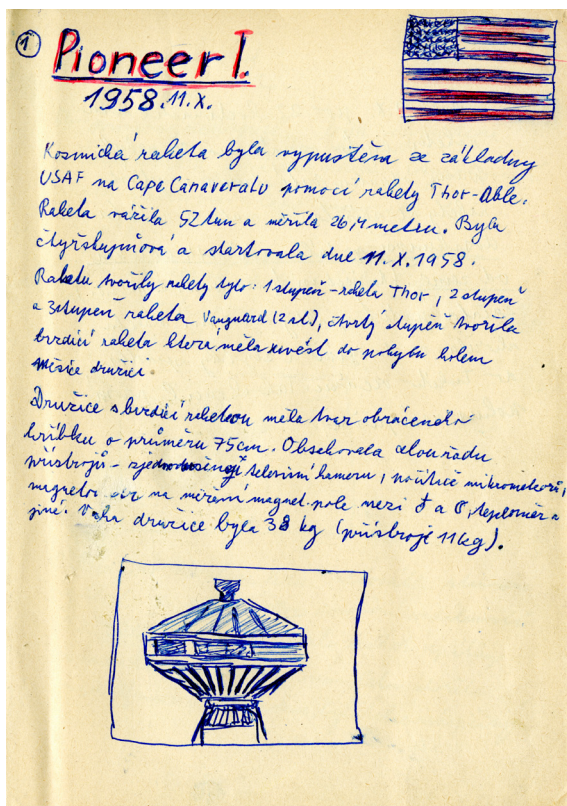 1 Pioneer I.
1958.11.X.
Kosmická raketa byla vypuštěna ze základny
USAF na Cape Canaveralu pomocí rakety Thor-Able.
Raketa vážila 52 tun a měřila 26,1 metru. Byla
čtyřstupňová a startovala dne 11.X.1958.
Raketu tvořily rakety tyto: 1 stupeň - raketa Thor, 2 stupeň
a 3 stupeň raketa Vanguard (2 st.), čtvrtý stupeň tvořila
brzdící raketa která měla uvést do pohybu kolem
Měsíce družici.
Družice s brzdící raketou měla tvar obráceného
hříbku o průměru 75cm. Obsahovala celou řadu
přístrojů - televisní kameru, počítače mikrometeorů,
na měření magnet. pole mezi ♁ a ☾, teploměr a
jiné. Váha družice byla 38 kg (přístroje 11kg).